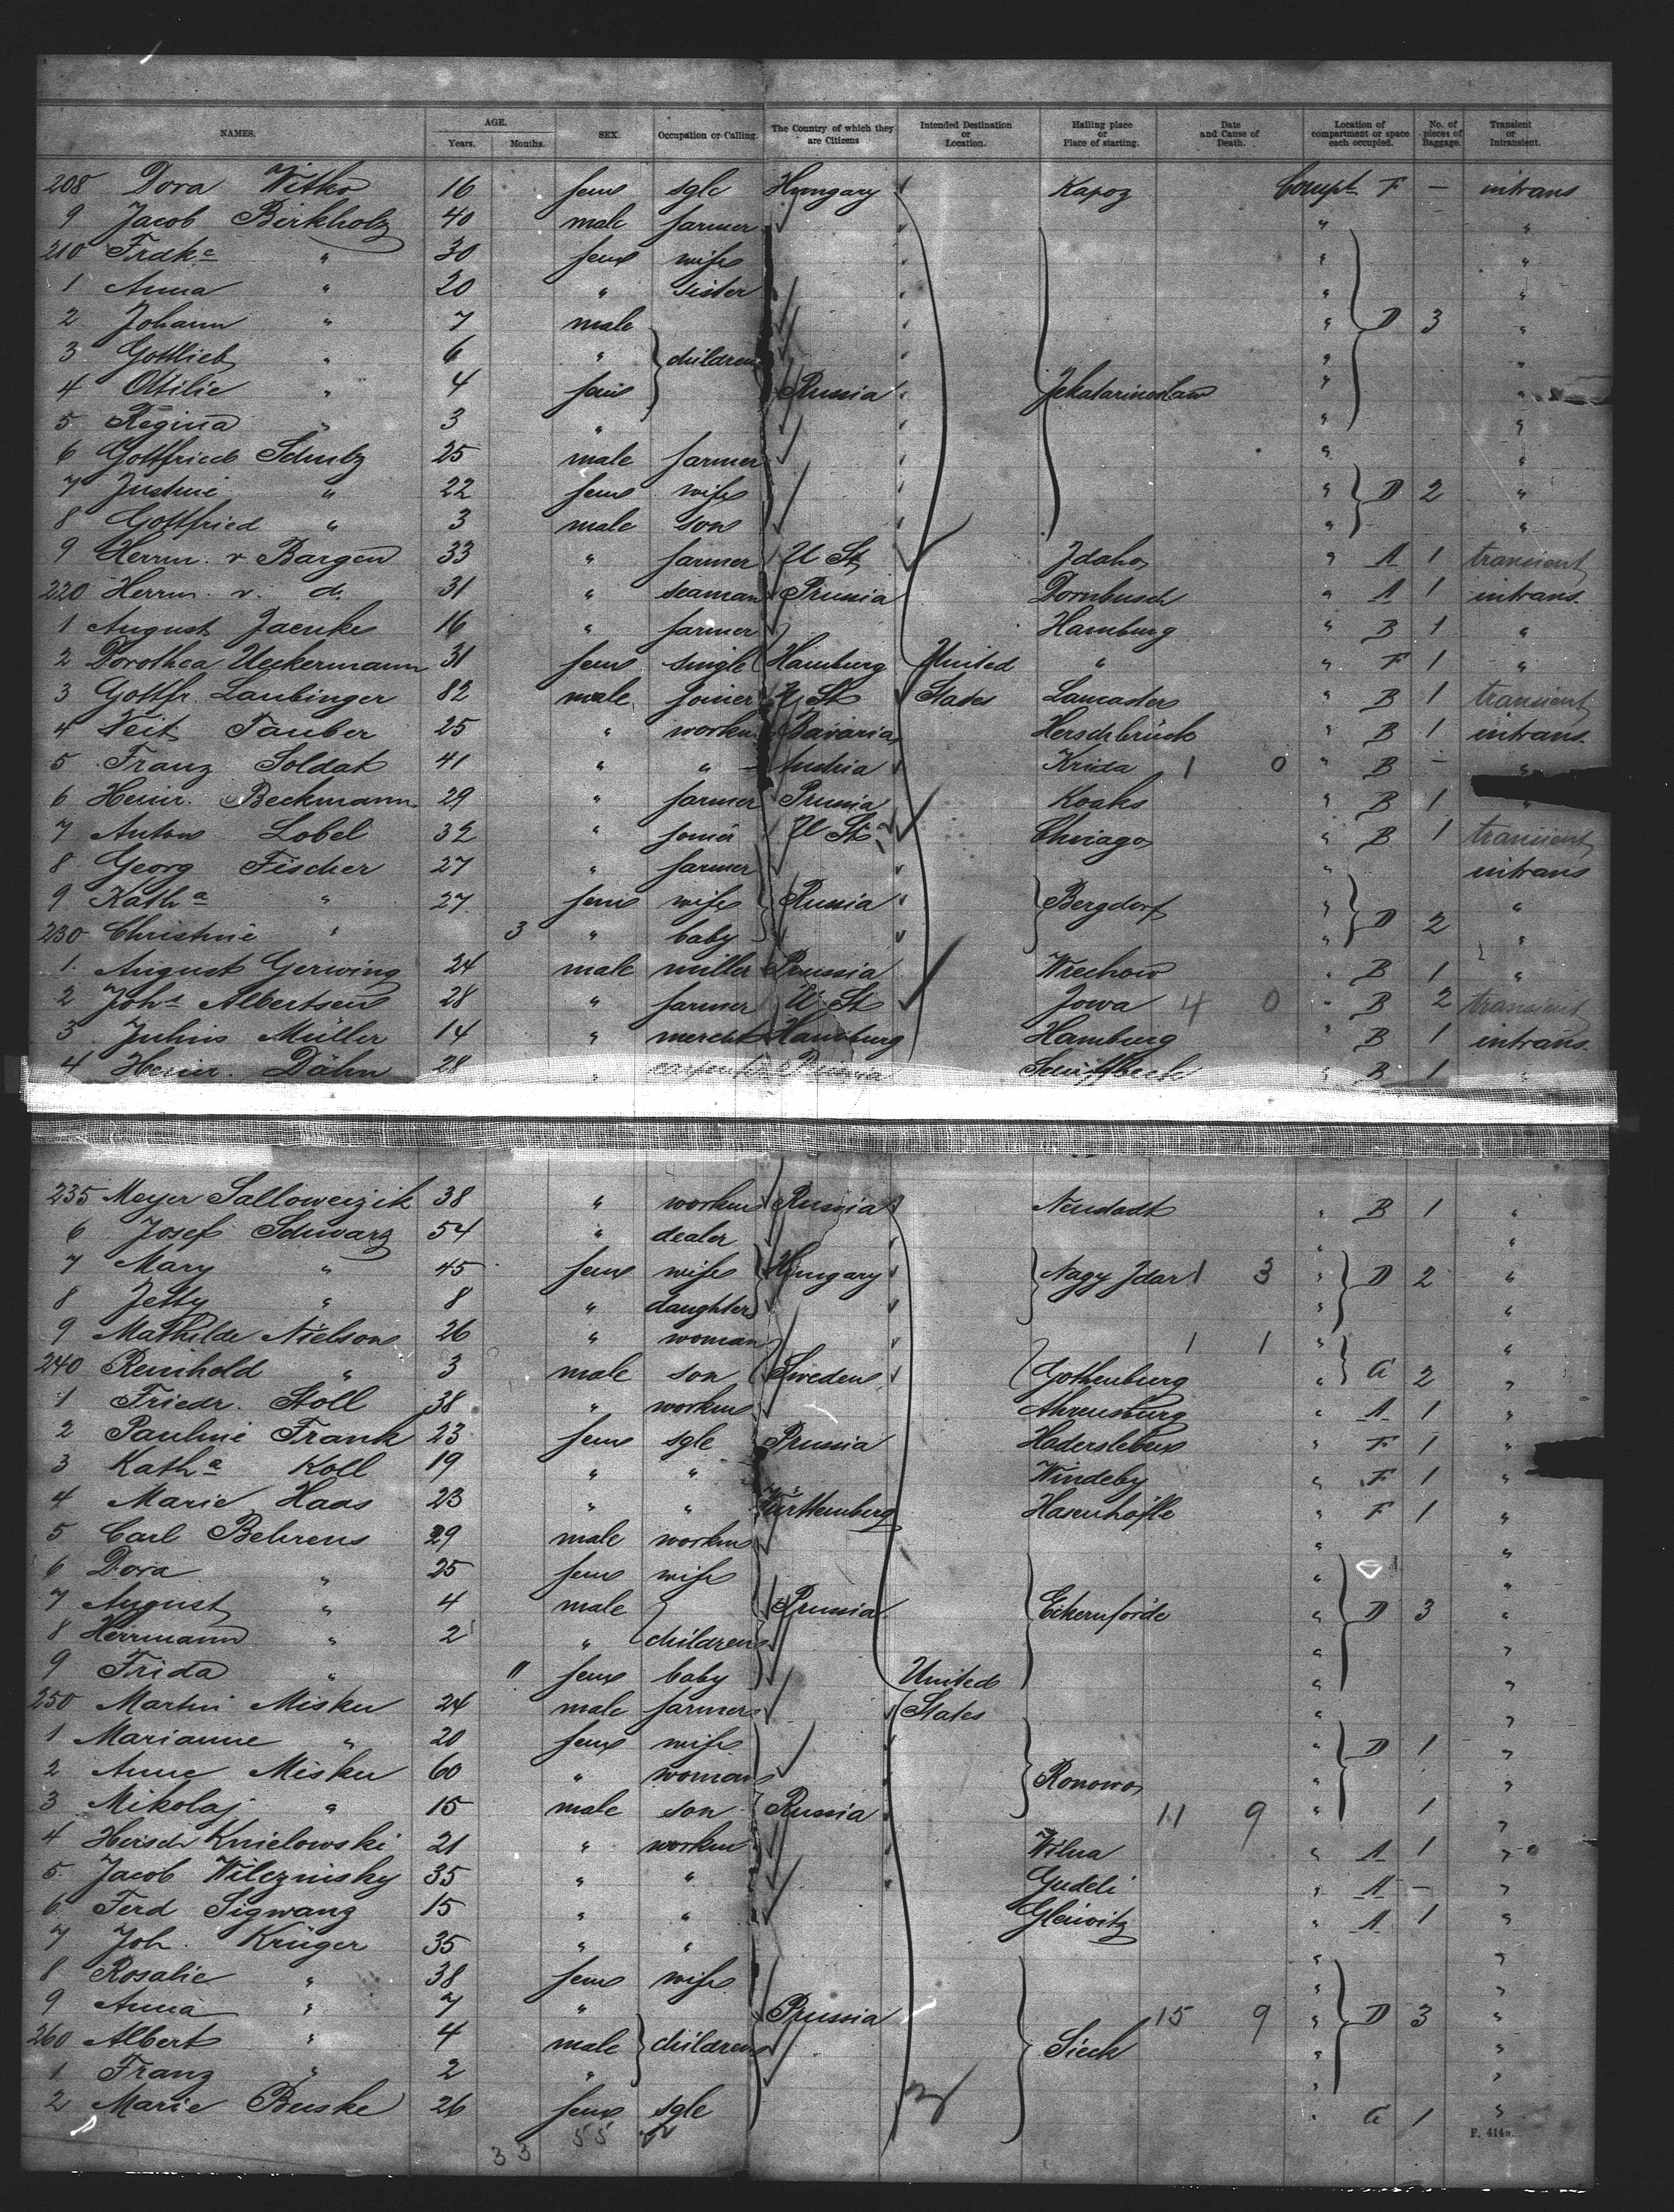 NAMES. AGE. Years. Months. SEX. Occupation or Calling. The Country of which they are Citizens Intended Destination or Location. Hailing place or Place of starting. Date and Cause of Death. Location of compartment or space each occupied. No. of pieces of Baggage. Transient or Intransient.
208 Dora Witko 16 fem sgle Hungary Kapoz Compt F — intrans
9 Jacob Birkholz 40 male farmer " "
210 Fradke " 30 fem wife " "
1 Anna " 20 " sister " "
2 Johann " 7 male " D 3 "
3 Gottlieb " 6 " children " "
4 Ottilie " 4 fem Russia Jekatarinoslaw " "
5 Regina " 3 " " "
6 Gottfried Schulz 25 male farmer " "
7 Justine " 22 fem wife " D 2 "
8 Gottfried " 3 male son " "
9 Herrm. v Bargen 33 " farmer U St Idaho " A 1 transient
220 Herrm. v. d. 31 " seaman Prussia Dornbusch " A 1 intrans.
1 August Jaenke 16 " farmer Hamburg " B 1 "
2 Dorothea Ueckermann 31 fem single Hamburg United " " F 1 "
3 Gottfr. Laubinger 82 male joiner U St States Lancaster " B 1 transient
4 Veit Tauber 25 " workm Bavaria Herschbrück " B 1 intrans.
5 Franz Soldat 41 " " Austria Krida 1 0 " B — "
6 Heinr. Beckmann 29 " farmer Prussia Koaks " B 1 "
7 Anton Lobel 32 " joiner U St Chicago " B 1 transient
8 Georg Fischer 27 " farmer " intrans
9 Katha " 27 fem wife Russia Bergdorf " "
230 Christine " 3 " baby " D 2 "
1 August Gerwing 24 male miller Prussia Wrechow " B 1 "
2 Johs Albertsen 28 " farmer U. St Iowa 4 0 " B 2 transient
3 Julius Müller 14 " mercht Hamburg Hamburg " B 1 intrans.
4 Heinr. Dähn 28 " carpenter Prussia Schiffbeck " B 1 "
235 Meyer Salloweizik 38 " workm Russia Neustadt " B 1 "
6 Josef Schwarz 54 " dealer " "
7 Mary " 45 fem wife Hungary Nagy Idar 1 3 " D 2 "
8 Jetty " 8 " daughter " "
9 Mathilde Nielson 26 " woman 1 1 " "
240 Reinhold " 3 male son Sweden Gothenburg " G 2 "
1 Friedr. Stoll 38 " workm Ahrensburg " A 1 "
2 Pauline Frank 23 fem sgle Prussia Hadersleben " F 1 "
3 Katha Koll 19 " " Windeby " F 1 "
4 Marie Haas 23 " " Württemberg Hasenhöfle " F 1 "
5 Carl Behrens 29 male workm " "
6 Dora " 25 fem wife " "
7 August " 4 male Prussia Eckernförde " D 3 "
8 Herrmann " 2 " children " "
9 Frida " 11 fem baby United " "
250 Martin Misku 24 male farmer States " "
1 Marianne " 20 fem wife " D 1 "
2 Anne Misku 60 " woman Ronowo " "
3 Mikolaj " 15 male son Russia 11 9 " 1 "
4 Hersch Knielowski 21 " workm Wilna " A 1 "
5 Jacob Wilczinsky 35 " " Gudeli " A — "
6 Ferd Sigwang 15 " " Gleiwitz " A 1 "
7 Joh. Krüger 35 " " " "
8 Rosalie " 38 fem wife " "
9 Anna " 7 " Prussia 15 9 " D 3 "
260 Albert " 4 male children Sieck " "
1 Franz " 2 " " "
2 Marie Buske 26 fem sgle " G 1 "
33 55
F. 414a.